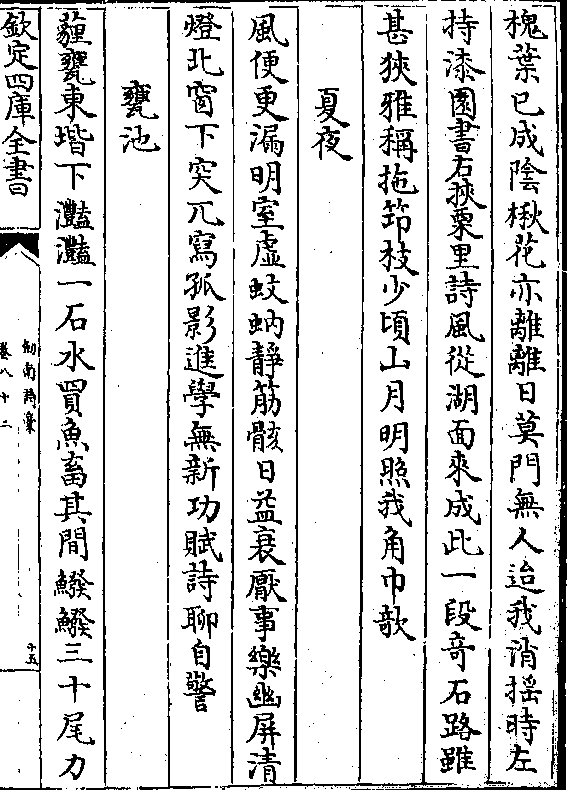 槐葉已成陰楸花亦離離日莫門無人迨我消揺時左
持漆園書右挾粟里詩風從湖面來成此一段竒石路雖
甚狹雅稱拖笻枝少頃山月明照我角巾欹
夏夜
風便更漏明室虚蚊蚋靜筋骸日益衰厭事樂幽屏清
燈北窗下突兀寫孤影進學無新功賦詩聊自警
甕池
薶甕東堦下灩灩一石水買魚畜其間鱍鱍三十尾力
欽定四庫全書
劒南詩稾
卷八十二
十五